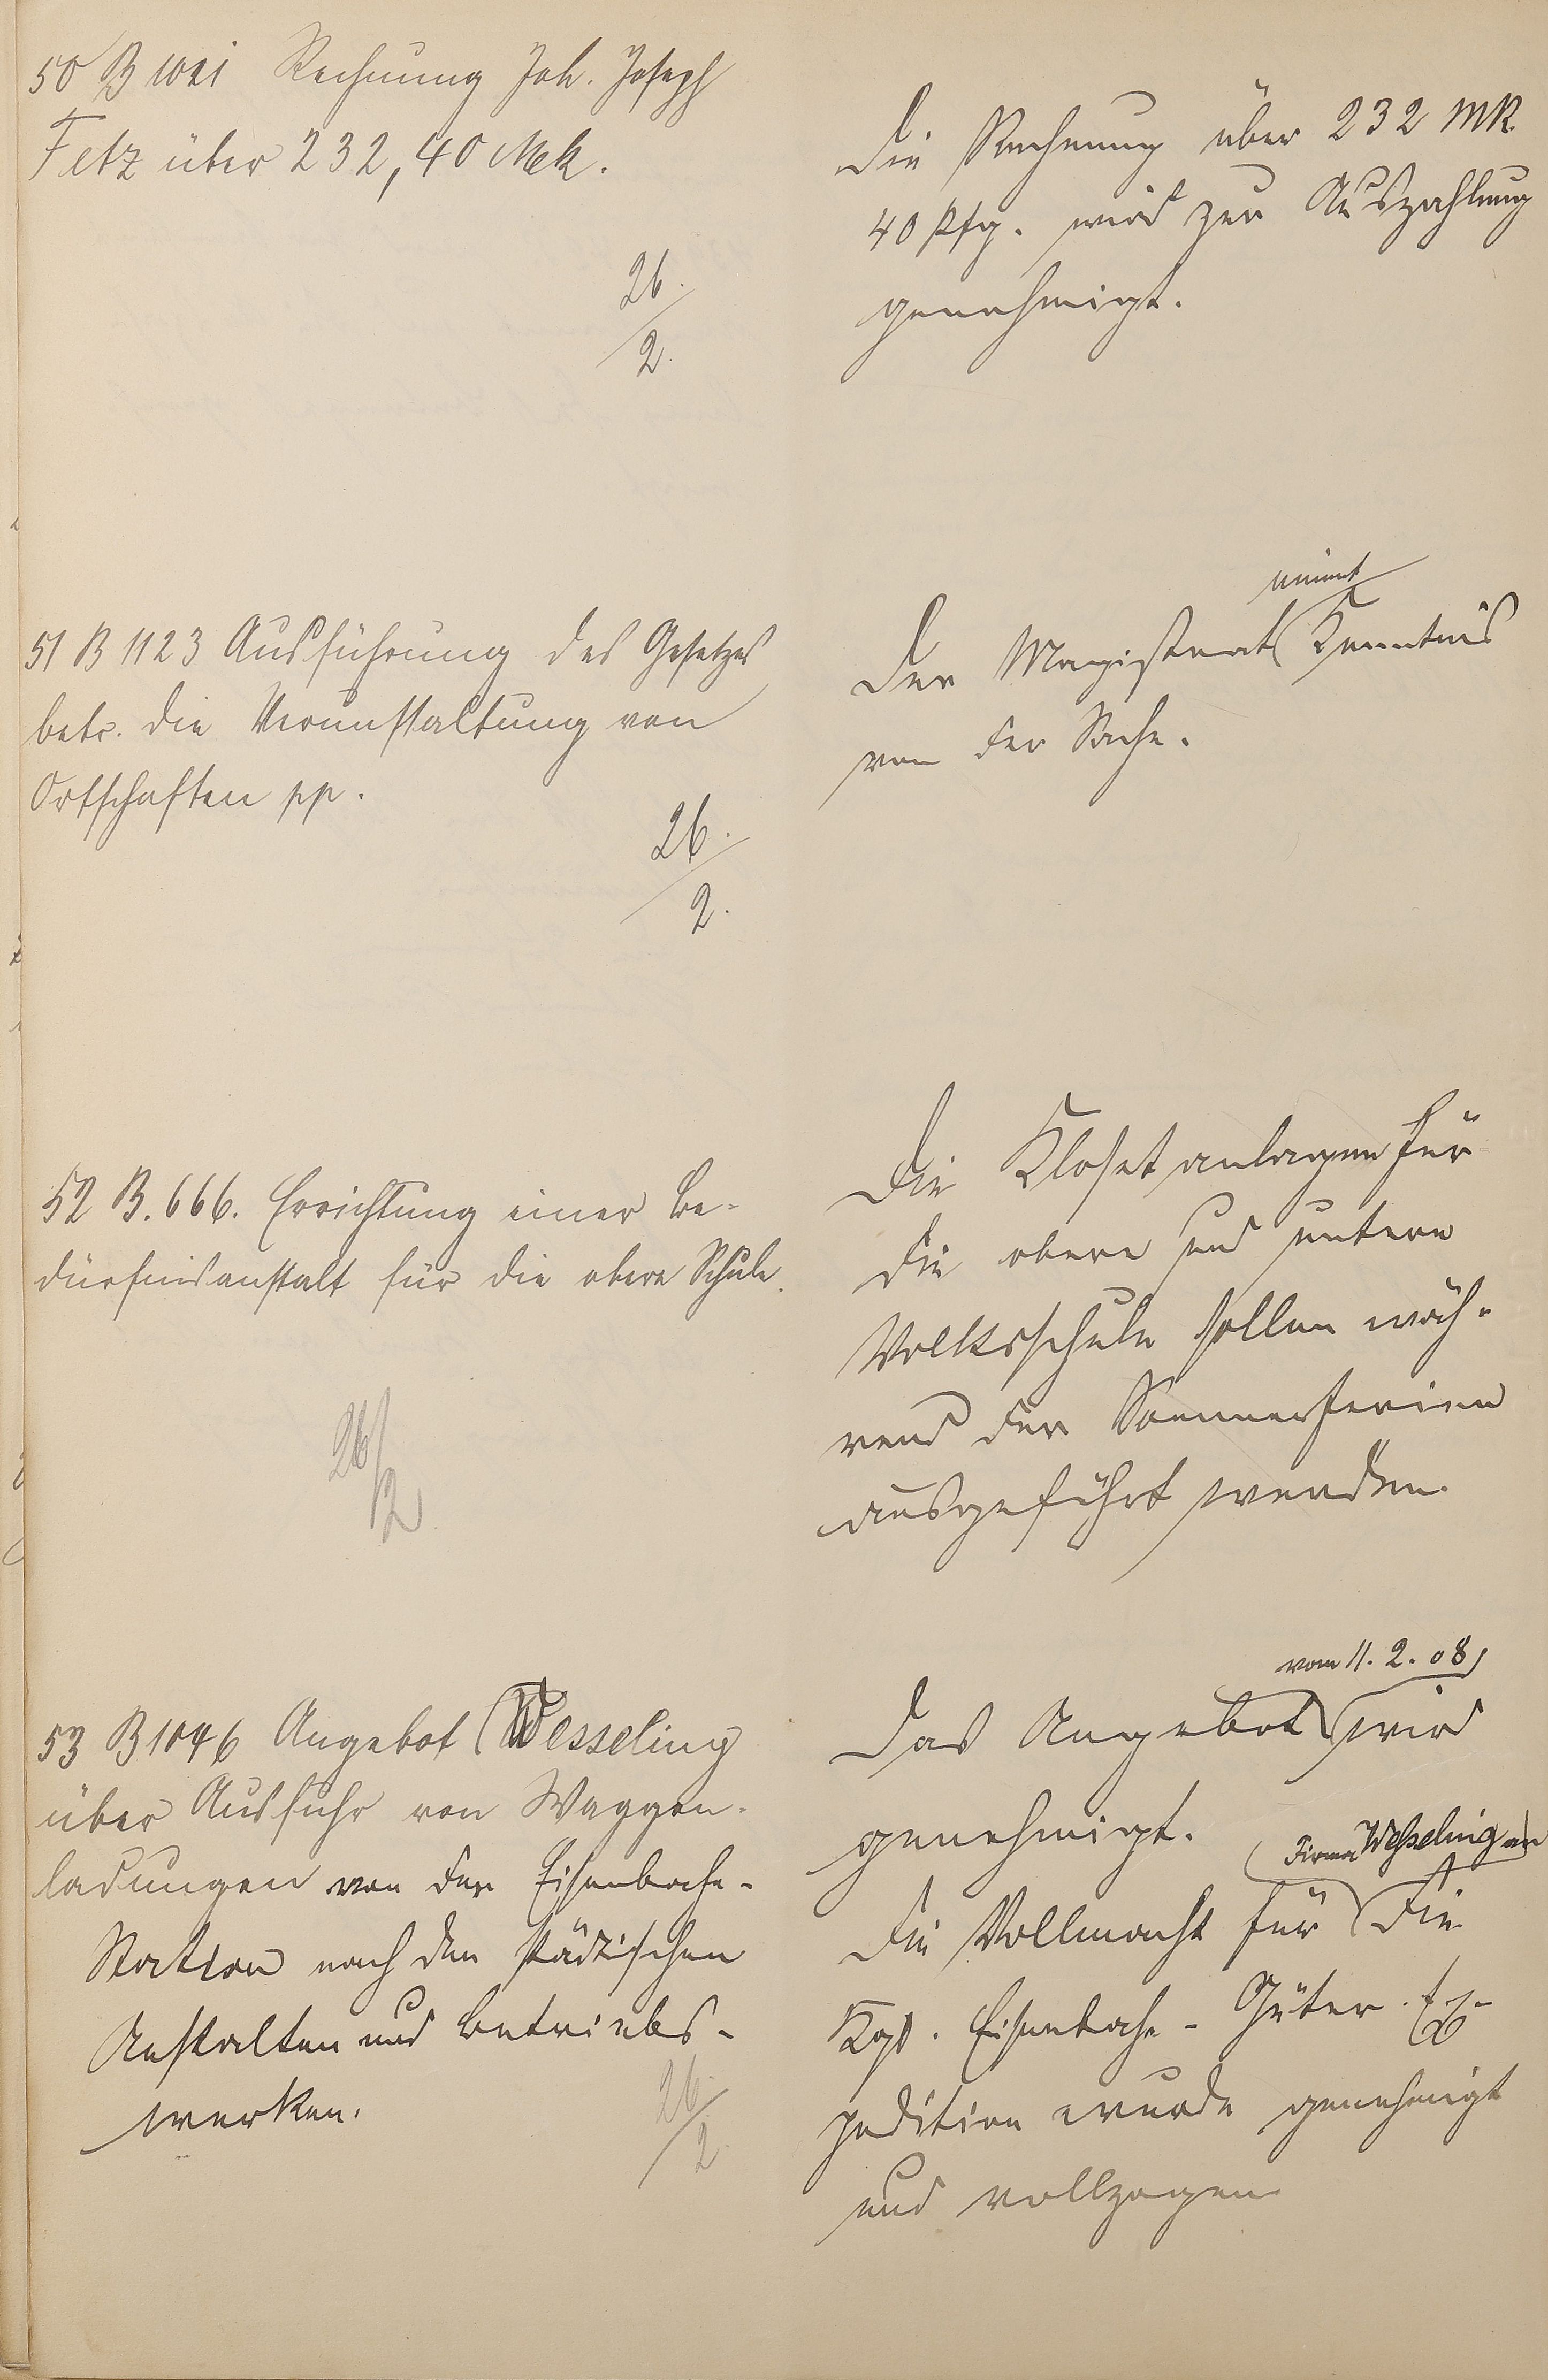 50 B 1021 Rechnung Joh. Joseph
Fetz über 232,40 Mek.
26.
2.
Die Rechnung über 232 MK
40 Pfg. wird zur Auszahlung
genehmigt.
51 B 1123 Ausführung des Gesetzes
betr. die Verunstaltung von
Ortschaften pp.
26.
2.
nimmt
Der Magistrat Kenntnis
von der Sache.
52 B. 666. Errichtung einer Be-
dürfnisanstalt für die obere Schule.
26/2
Die Klosetanlagen für
die obere und untere
Volksschule sollen wäh-
rend der Sommerferien
ausgeführt werden.
53 B 1046 Angebot Wesseling
über Ausfuhr von Waggon-
ladungen von der Eisenbahn-
Station nach den städtischen
Anstalten und Betriebs-
werken.
26.
2.
vom 11.2.08,
Das Angebot wird
genehmigt.
Firma Wesseling an
Die Vollmacht für die
Kgl. Eisenbahn-Güter-Ex-
pedition wurde genehmigt
und vollzogen